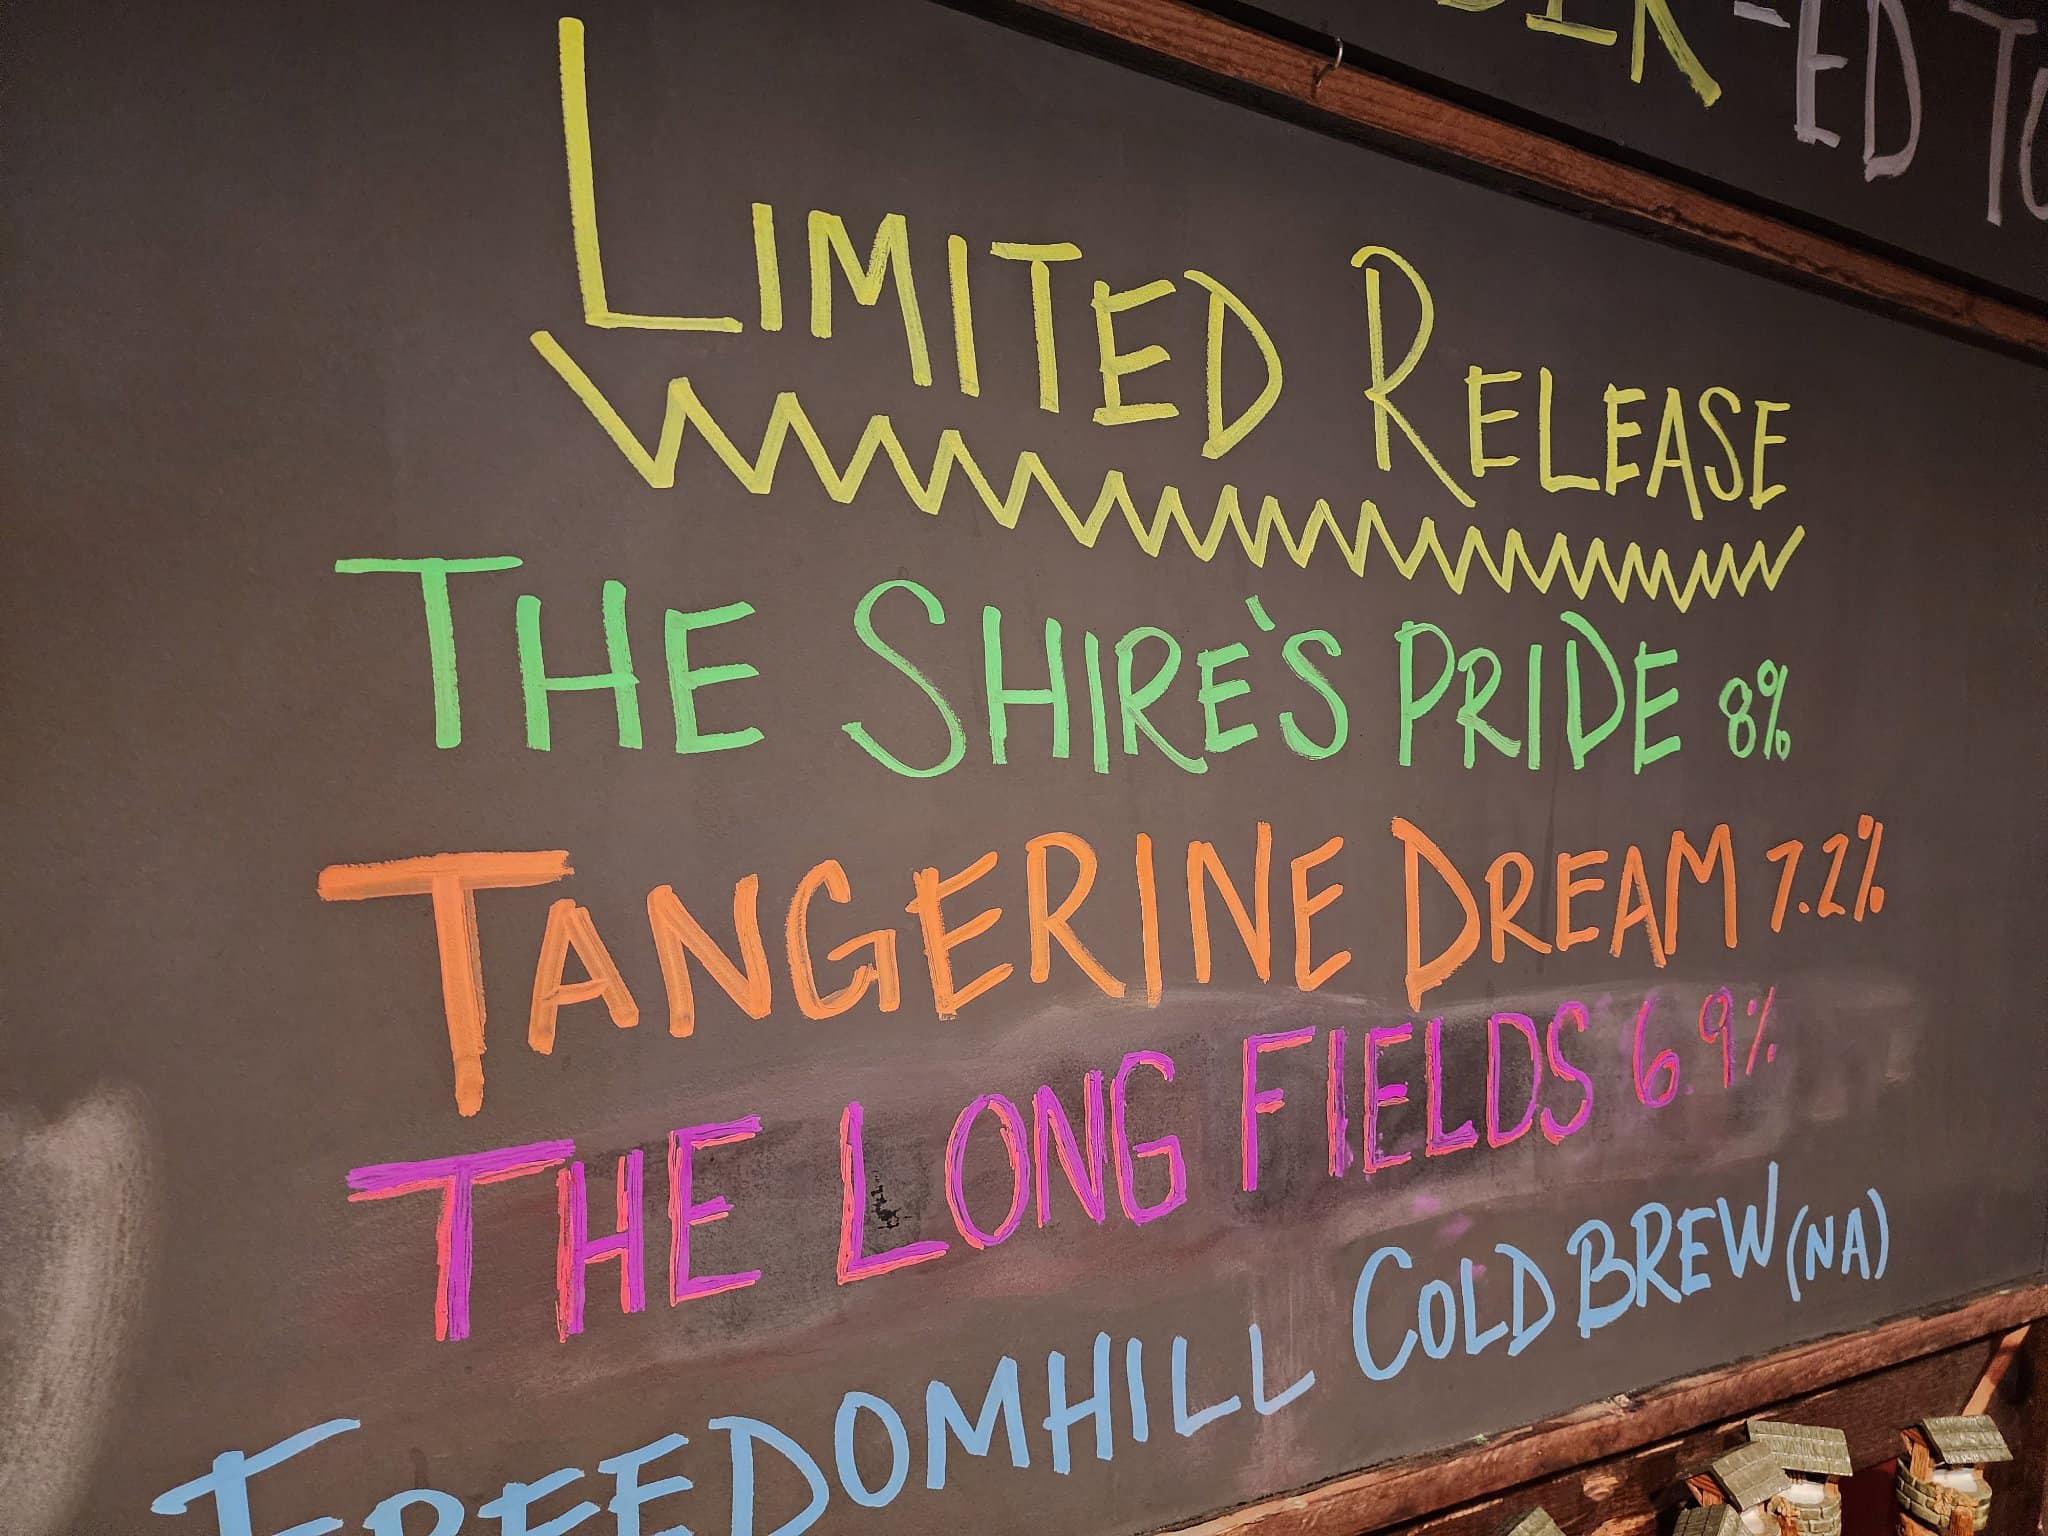 -ED TO
LIMITED RELEASE
THE SHIRE'S PRIDE 8%
TANGERINE DREAM 7.2%
THE LONG FIELDS 6.9%
FREEDOMHILL COLD BREW (NA)